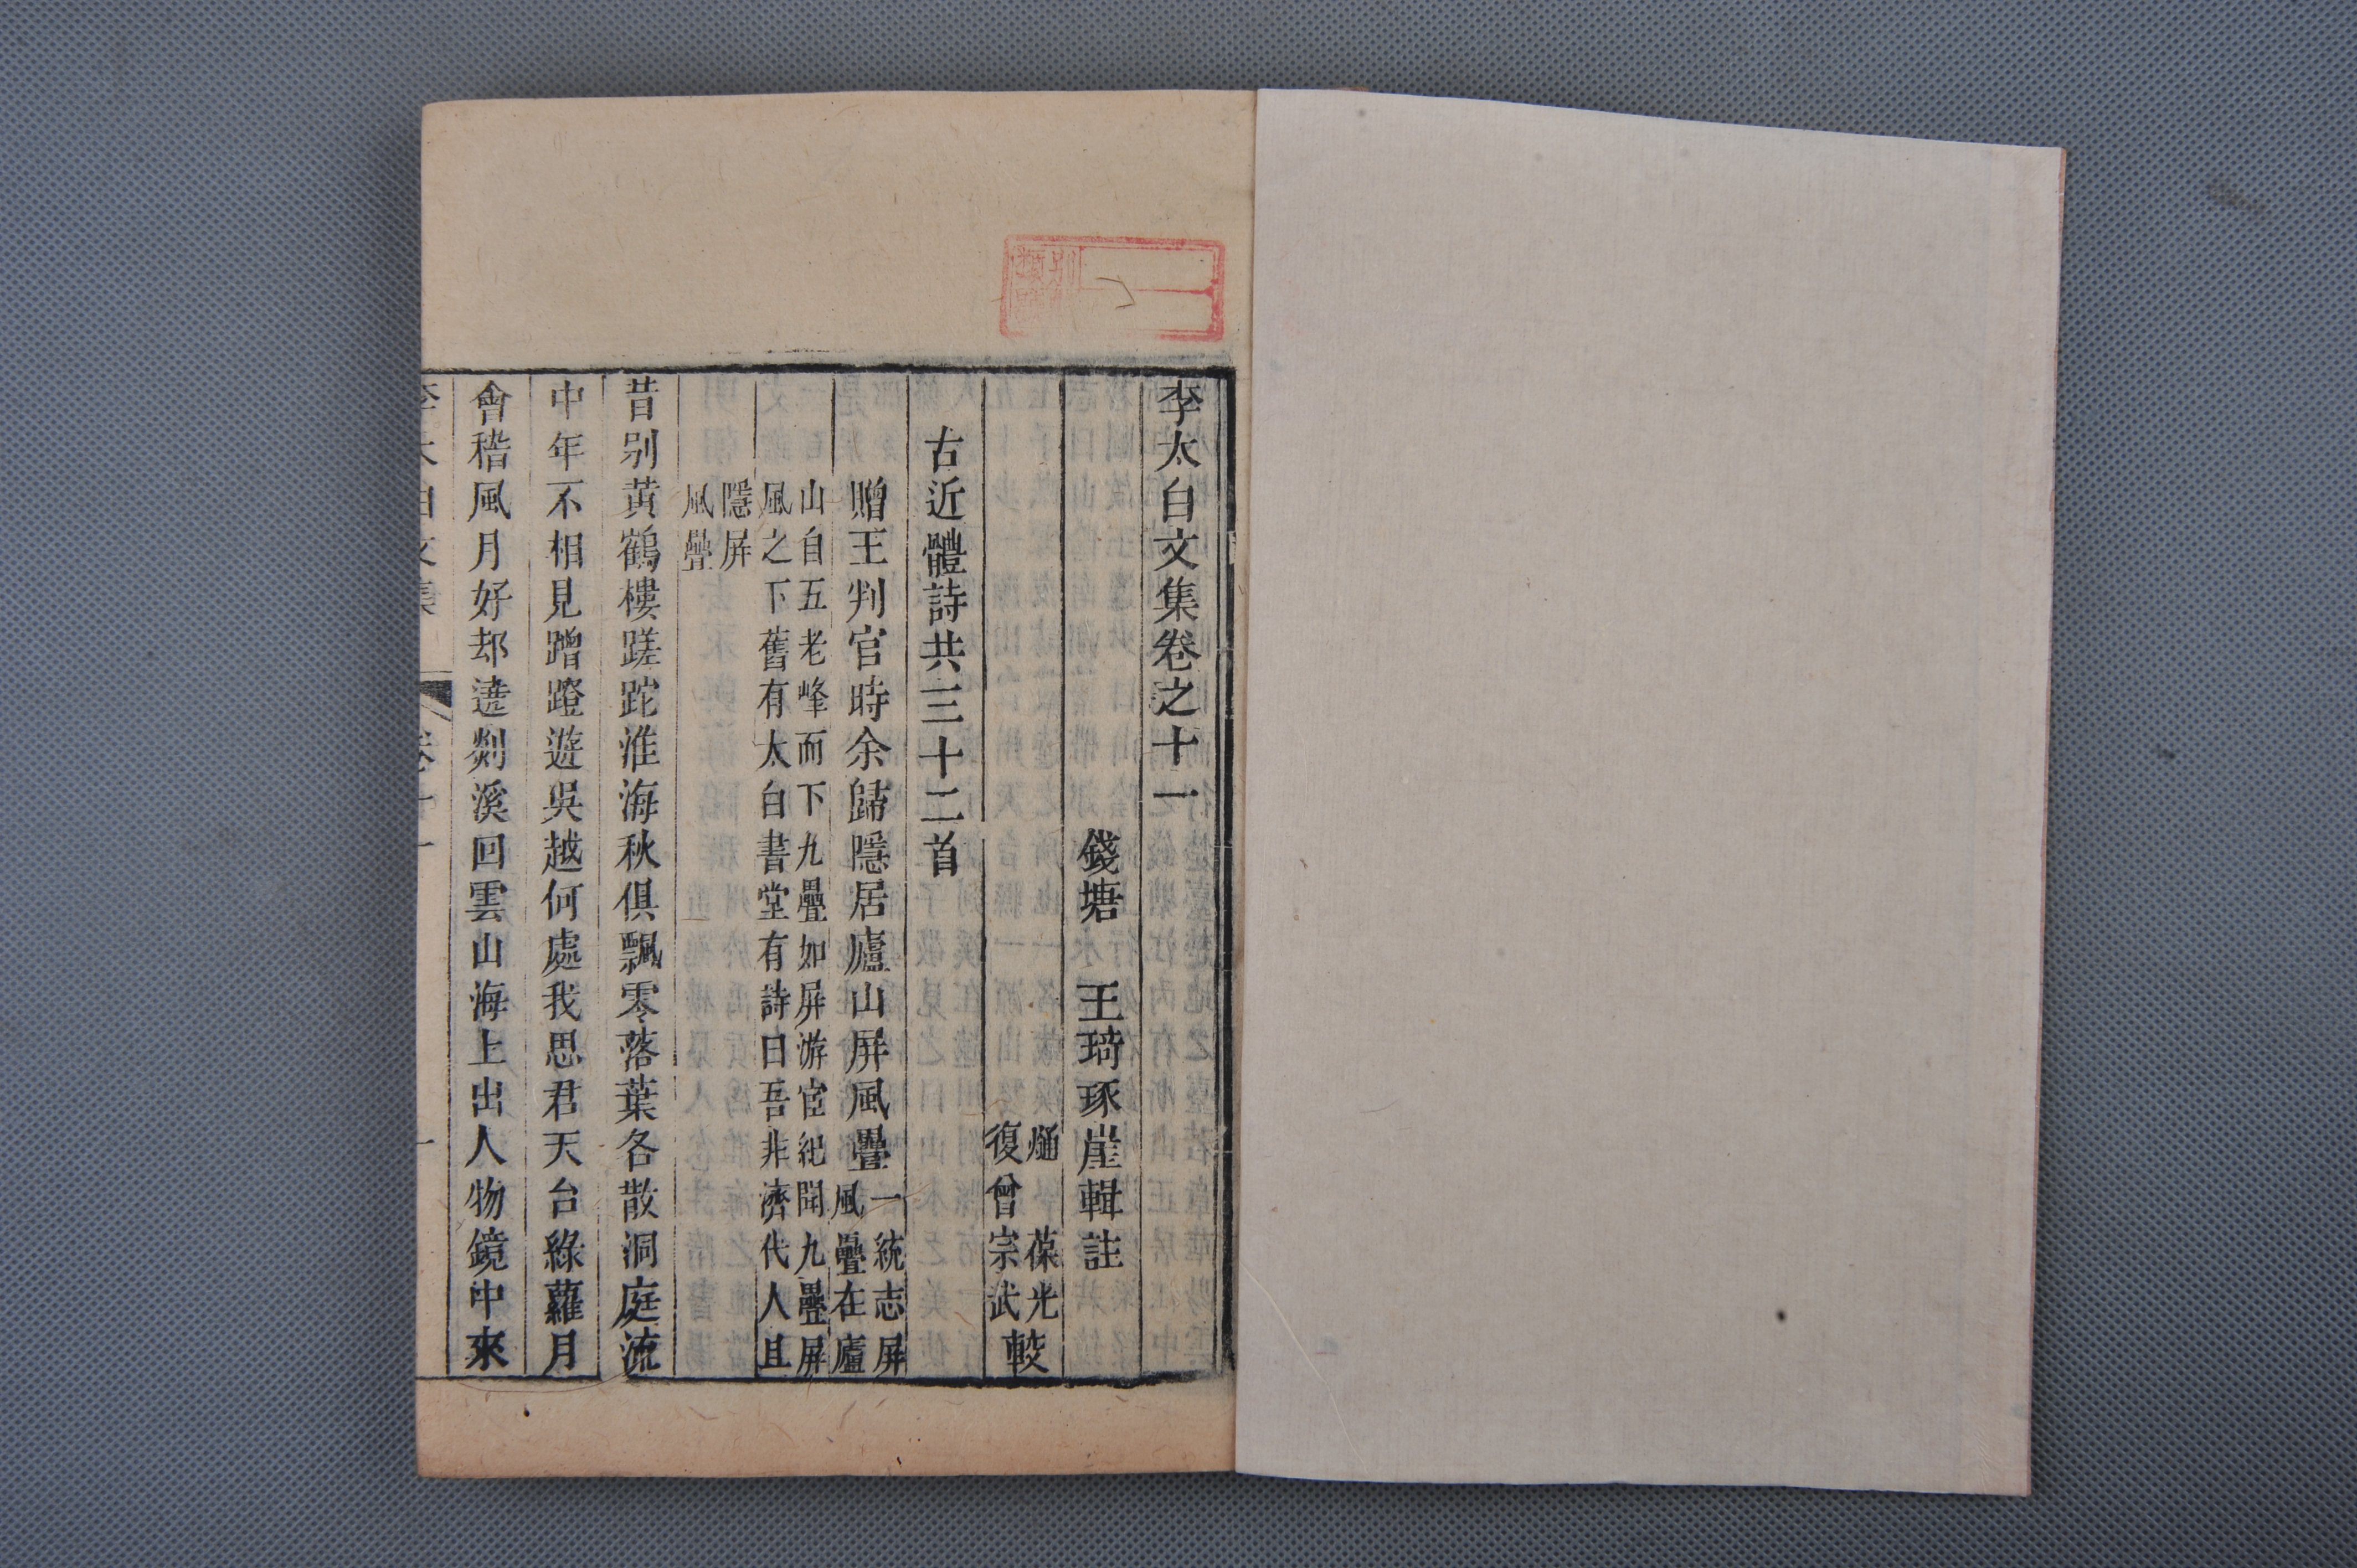 李太白文集卷之十一
錢塘 王琦琢崖輯註
葆光
復曾宗武
較
古近體詩共三十二首
贈王判官時余歸隱居廬山屏風疊
一統志屏
風疊在廬
山自五老峰而下九疊如屏游宦紀聞九疊屏
風之下舊有太白書堂有詩曰吾非濟代人且
隱屏
風疊
昔別黃鶴樓蹉跎淮海秋俱飄零落葉各散洞庭流
中年不相見蹭蹬遊吳越何處我思君天台綠蘿月
會稽風月好却遶剡溪回雲山海上出人物鏡中來